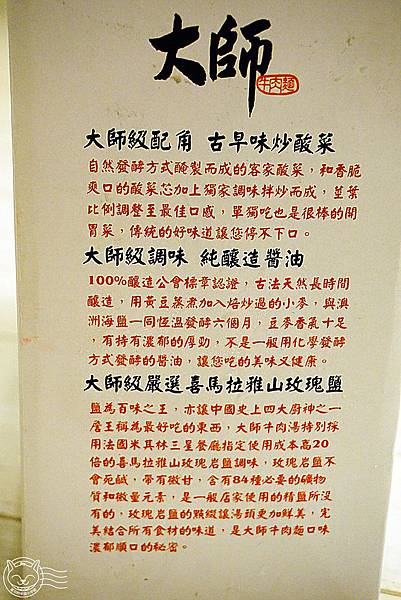 大師
牛肉麵
大師級配角 古早味炒酸菜
自然發酵方式醃製而成的客家酸菜，和香脆
爽口的酸菜芯加上獨家調味拌炒而成，莖葉
比例調整至最佳口感，單獨吃也是很棒的開
胃菜，傳統的好味道讓您停不下口。
大師級調味 純釀造醬油
100%釀造公會標章認證，古法天然長時間
釀造，用黃豆蒸煮加入焙炒過的小麥，與澳
洲海鹽一同恆溫發酵六個月，豆麥香氣十足
，有特有濃郁的厚勁，不是一般用化學發酵
方式發酵的醬油，讓您吃的美味又健康。
大師級嚴選喜馬拉雅山玫瑰鹽
鹽為百味之王，亦讓中國史上四大廚神之一
詹王稱為最好吃的東西，大師牛肉湯特別採
用法國米其林三星餐廳指定使用成本高20
倍的喜馬拉雅山玫瑰岩鹽調味，玫瑰岩鹽不
會死鹹，帶有微甘，含有84種必要的礦物
質和微量元素，是一般店家使用的精鹽所沒
有的，玫瑰岩鹽的點綴讓湯頭更加鮮美，完
美結合所有食材的味道，是大師牛肉麵口味
濃郁順口的秘密。